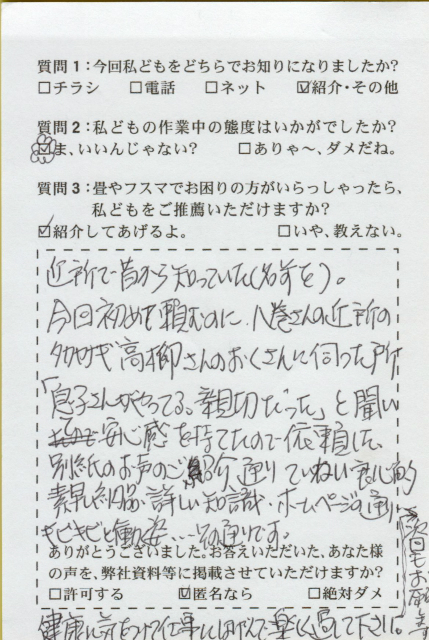 質問1:今回私どもをどちらでお知りになりましたか?
□チラシ □電話 □ネット ☑紹介・その他
質問2:私どもの作業中の態度はいかがでしたか?
☑ま、いいんじゃない? □ありゃ〜、ダメだね。
質問3:畳やフスマでお困りの方がいらっしゃったら、
私どもをご推薦いただけますか?
☑紹介してあげるよ。 □いや、教えない。
近所で昔から知っていた(名前を)。
今回初めて頼むのに、八巻さんの近所の
高柳さんのおくさんに伺った所
「息子さんがやってる。親切だった」と聞い
安心感を持てたので依頼した。
別紙のお声のご紹介通りていねい良心的
素早い 詳しい知識・ホームページの通り
キビキビと働く姿...その通りです。
ありがとうございました。お答えいただいた、あなた様
の声を、弊社資料等に掲載させていただけますか?
□許可する ☑匿名なら □絶対ダメ
健康に気をつけて仕事にはげんで 過して下さい
次回もお